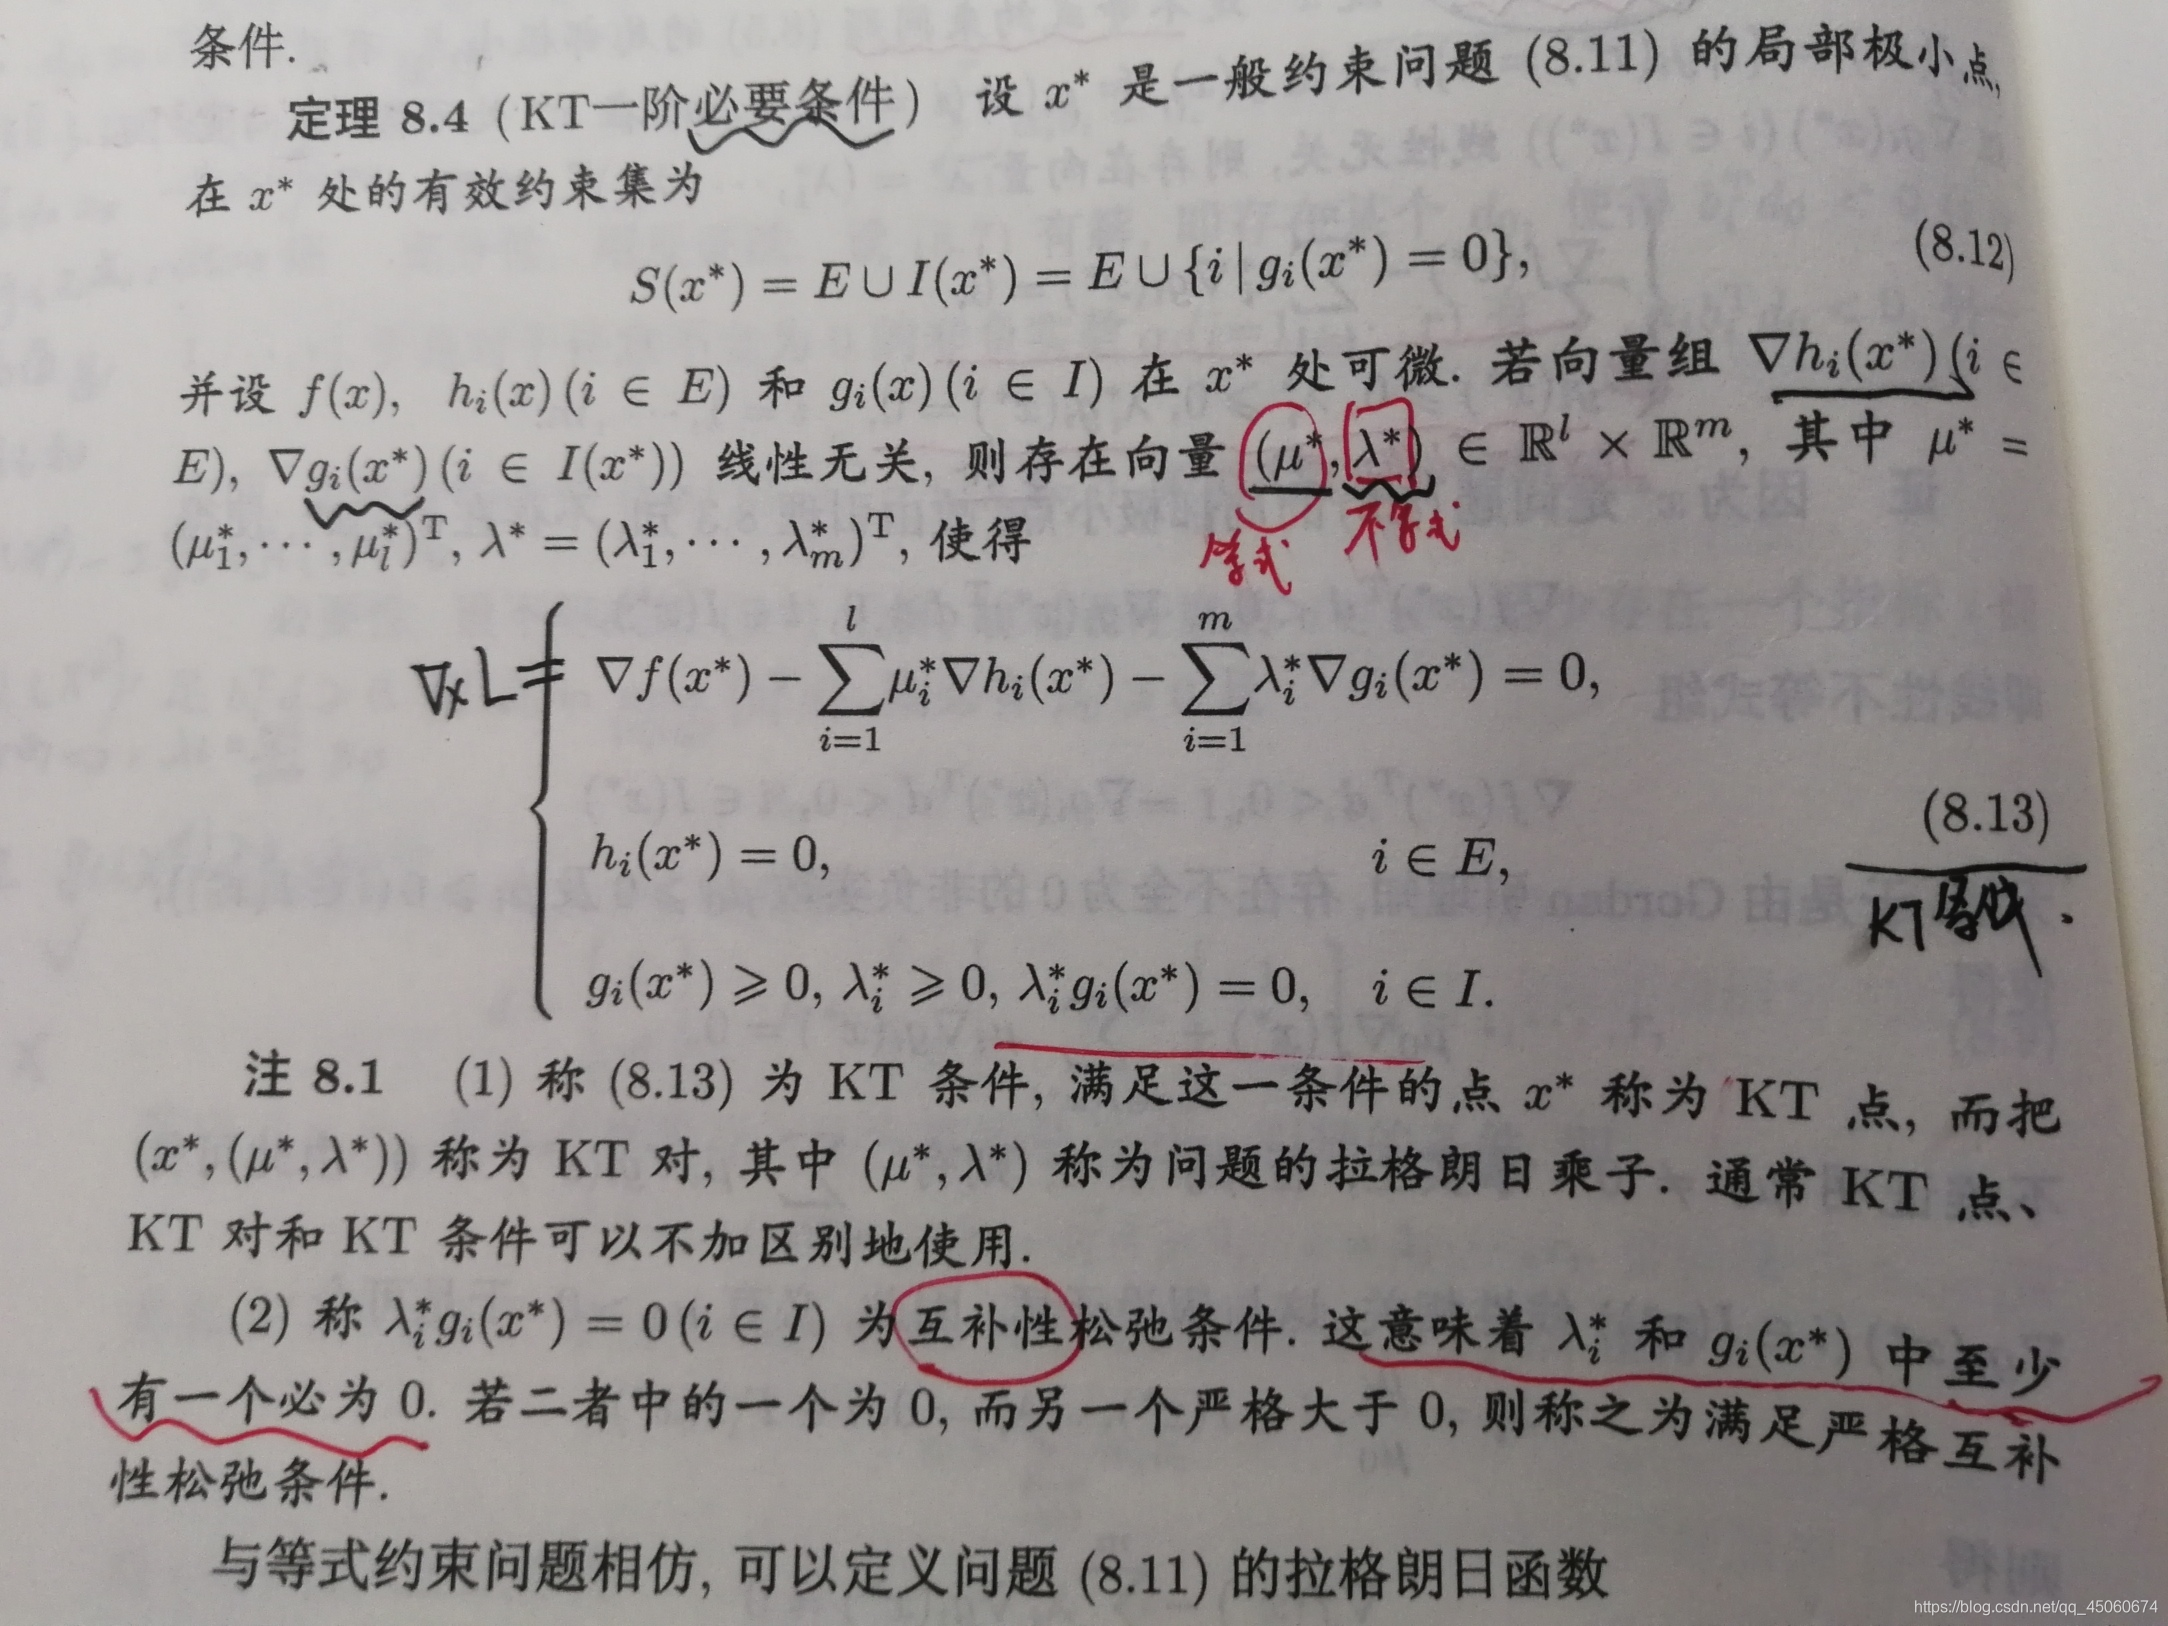 条件.
定理 8.4 (KT一阶必要条件) 设 x* 是一般约束问题 (8.11) 的局部极小点,
在 x* 处的有效约束集为
S(x*) = E ∪ I(x*) = E ∪ {i | g_i(x*) = 0}, (8.12)
并设 f(x), h_i(x) (i ∈ E) 和 g_i(x) (i ∈ I) 在 x* 处可微. 若向量组 ∇h_i(x*) (i ∈
E), ∇g_i(x*) (i ∈ I(x*)) 线性无关, 则存在向量 (μ*, λ*) ∈ ℝ^l × ℝ^m, 其中 μ* =
(μ_1^*, ⋯, μ_l^*)^T, λ* = (λ_1^*, ⋯, λ_m^*)^T, 使得
等式 不等式
∇_x L = ∇f(x*) − ∑_{i=1}^{l} μ_i^* ∇h_i(x*) − ∑_{i=1}^{m} λ_i^* ∇g_i(x*) = 0,
h_i(x*) = 0, i ∈ E, (8.13)
KT
g_i(x*) ⩾ 0, λ_i^* ⩾ 0, λ_i^* g_i(x*) = 0, i ∈ I.
注 8.1 (1) 称 (8.13) 为 KT 条件, 满足这一条件的点 x* 称为 KT 点, 而把
(x*, (μ*, λ*)) 称为 KT 对, 其中 (μ*, λ*) 称为问题的拉格朗日乘子. 通常 KT 点、
KT 对和 KT 条件可以不加区别地使用.
(2) 称 λ_i^* g_i(x*) = 0 (i ∈ I) 为互补性松弛条件. 这意味着 λ_i^* 和 g_i(x*) 中至少
有一个必为 0. 若二者中的一个为 0, 而另一个严格大于 0, 则称之为满足严格互补
性松弛条件.
与等式约束问题相仿, 可以定义问题 (8.11) 的拉格朗日函数
https://blog.csdn.net/qq_45060674